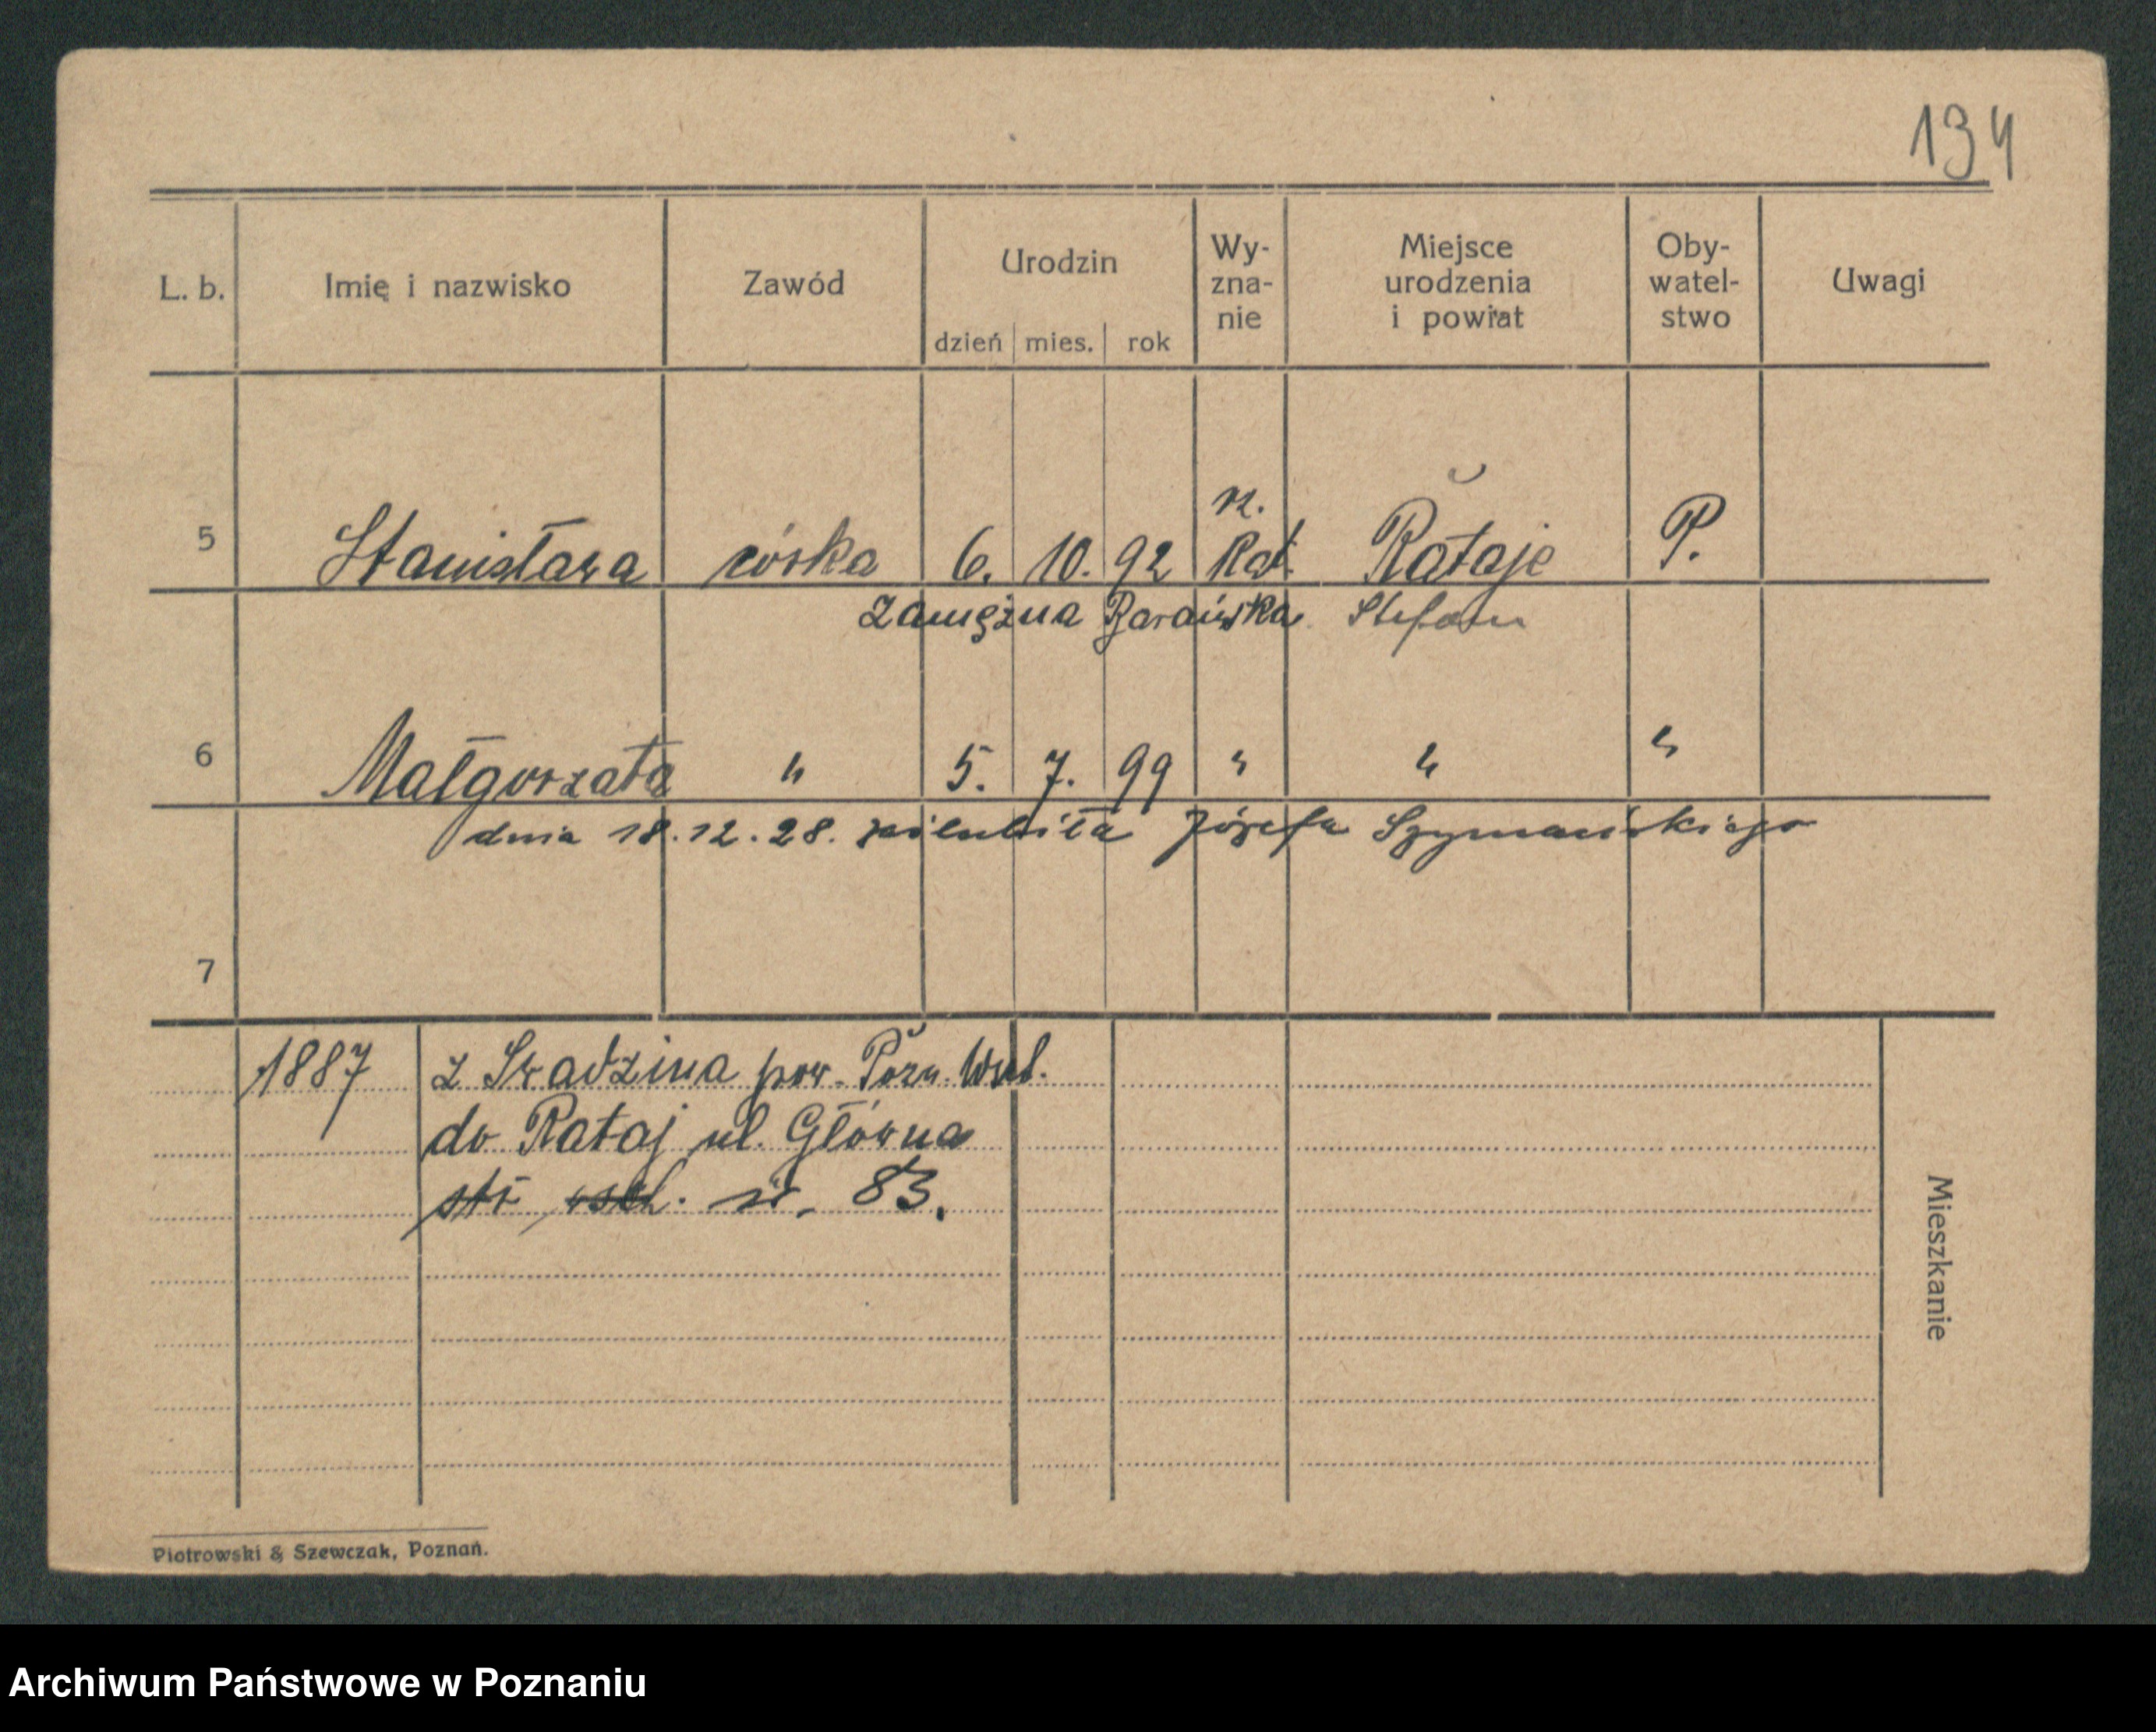 134
L. b. Imię i nazwisko Zawód Urodzin dzień mies. rok Wy-zna-nie Miejsce urodzenia i powiat Oby-watel-stwo Uwagi
5 Stanisława córka 6. 10. 92 rz. Kat. Rataje P.
zamężna Barańska Stefan
6 Małgorzata " 5. 7. 99 " " "
dnia 18.12.28. poślubiła Józefa Szymańskiego
7
1887 z Swadzima pow. Pozn. Wsch.
do Rataj ul. Główna
nr. 83.
Mieszkanie
Piotrowski & Szewczak, Poznań.
Archiwum Państwowe w Poznaniu